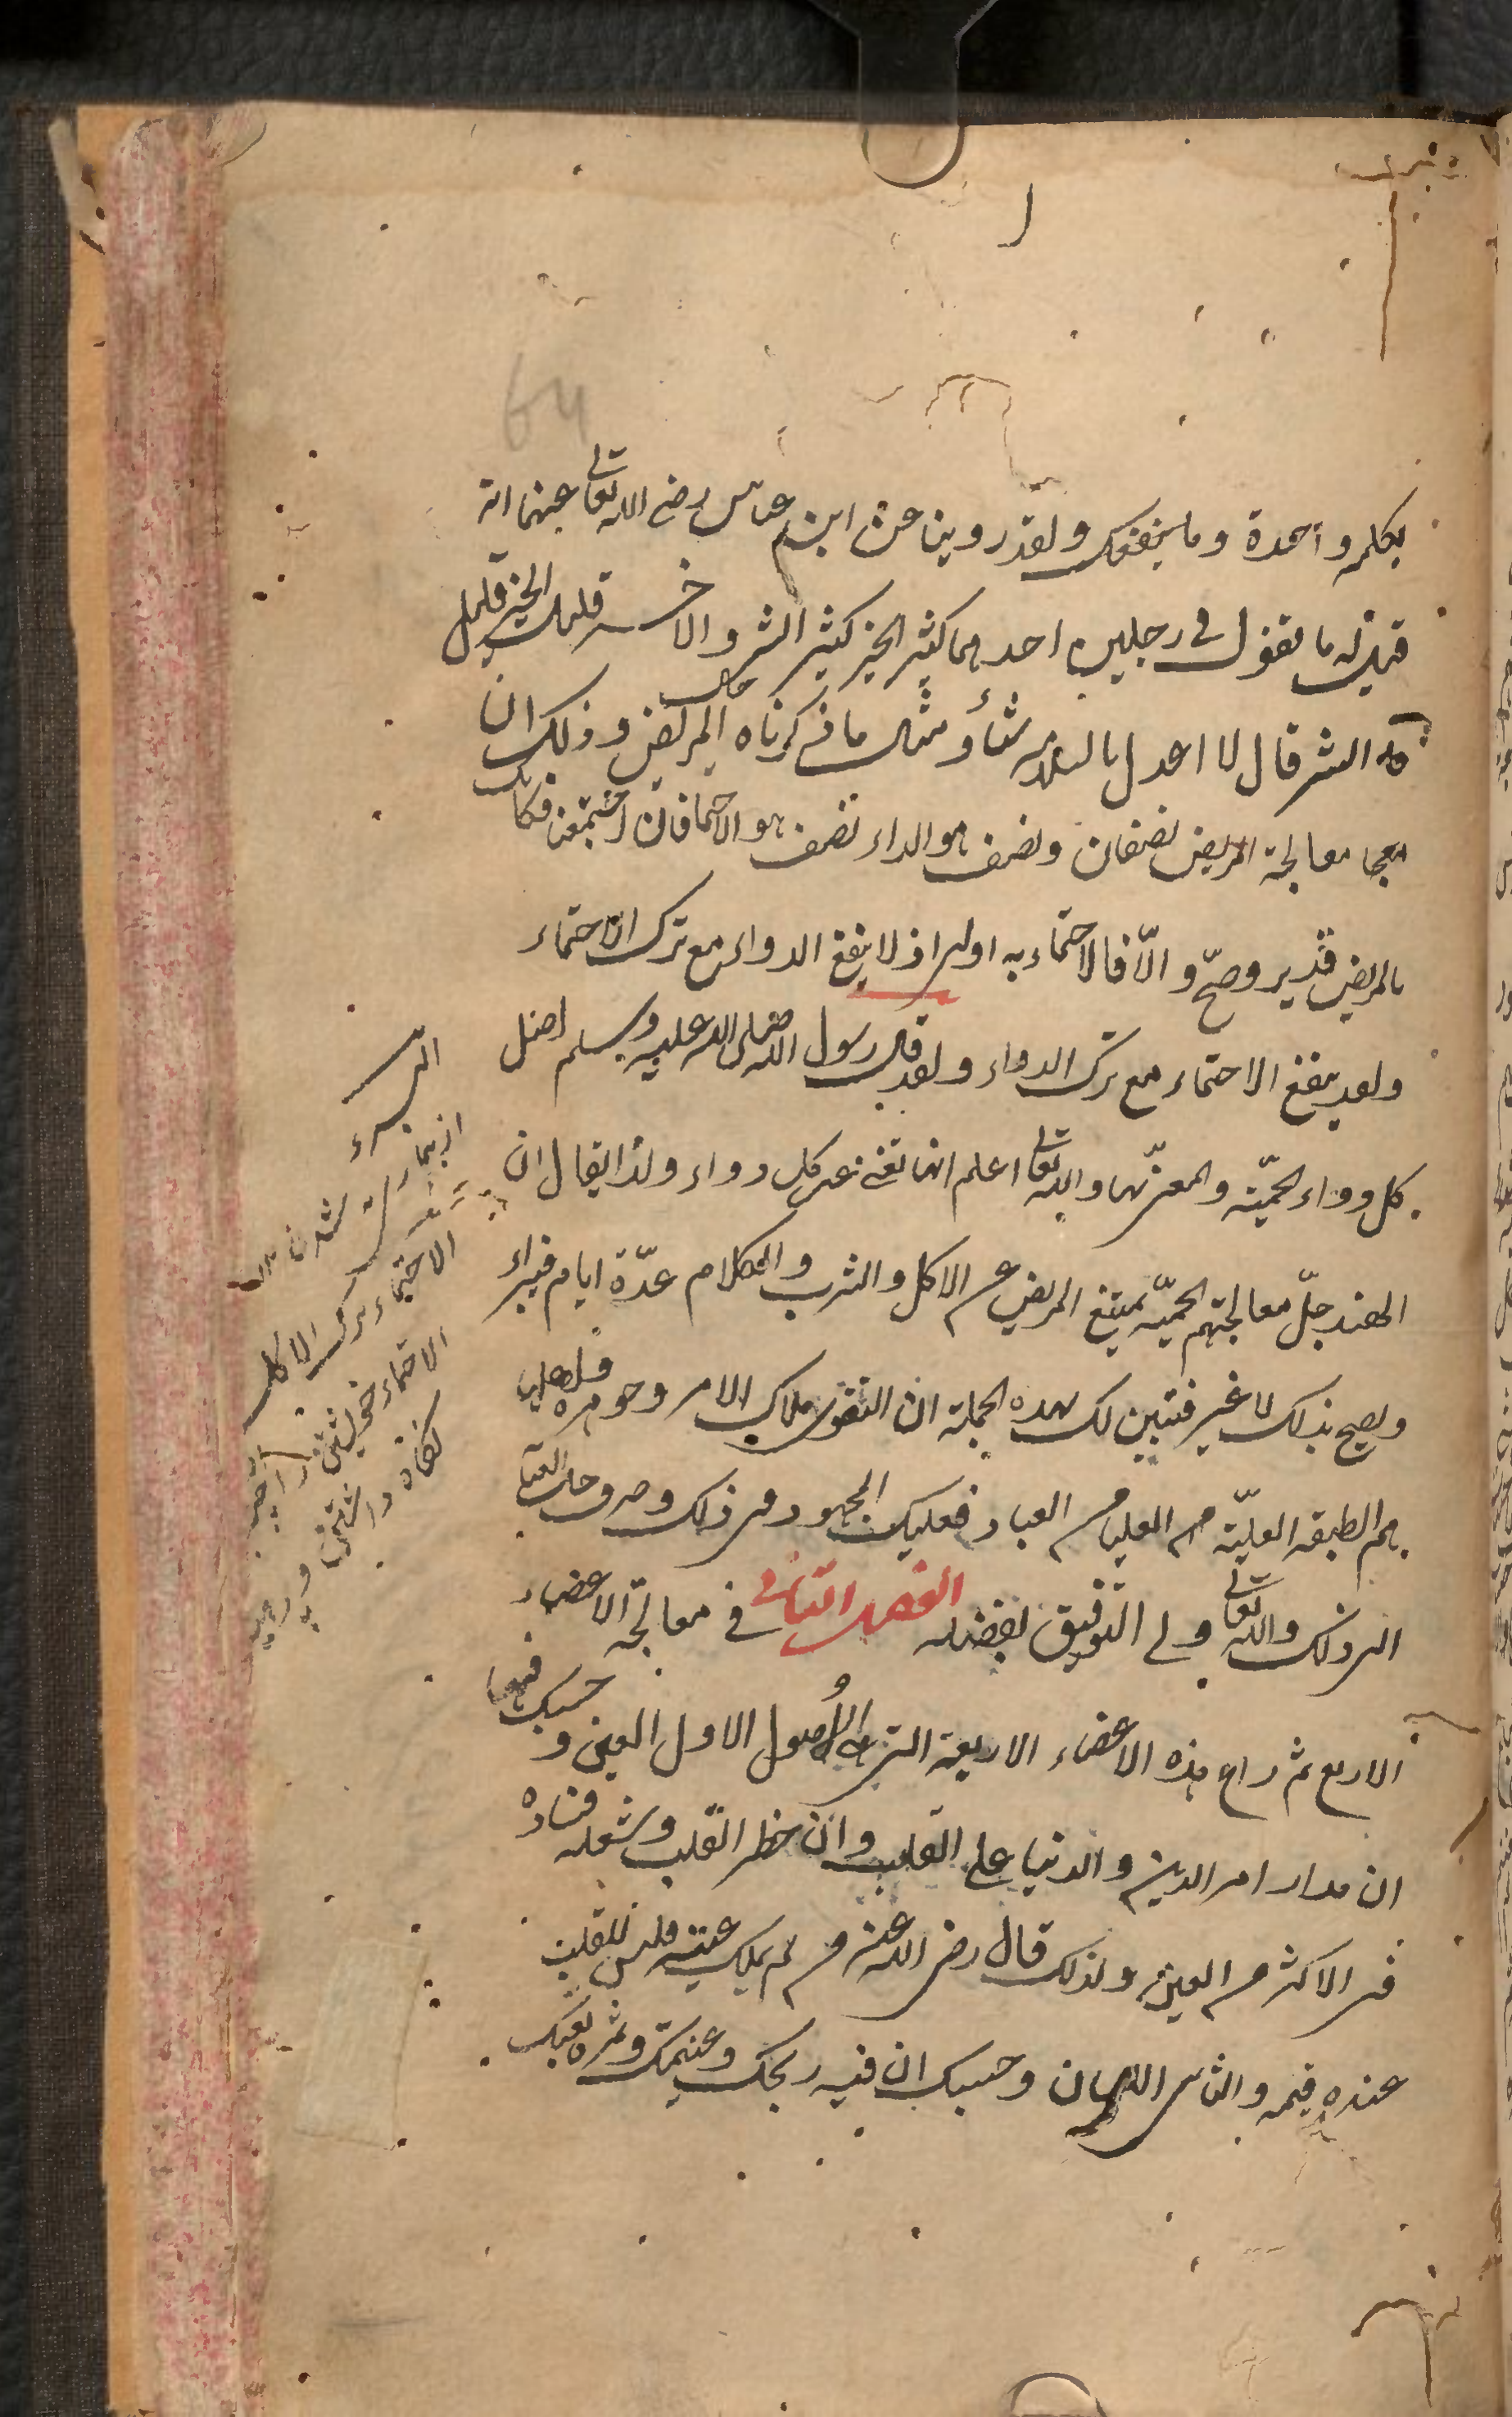 بكلمة وأحدة وما ينفعك ولقد روينا عن ابن عباس رضى الله تعالى عنهما انه
قيل له ما تقول فى رجلين احدهما كثير الخير كثير الشر والاخر قليل الخير قليل
الشر قال لا اعدل بالسلامة شئأ ومثال ما ذكرناه حال المريض وذلك ان
معالجة المريض نصفان ونصف هو الداء نصف هو الاحما فان اجتمعن فكانك
بالمريض قد برء وصحّ والّا فالاحتماء به اولى اذ لا ينفع الدواء مع ترك الاحتماء
ولقد ينفع الاحتماء مع ترك الدواء ولقد قال رسول الله صلى الله عليه وسلم اصل
كل دواء الحميّة والمعنى بها والله تعالى اعلم انها تغنى عن كل دواء ولذا يقال ان
الهند جلّ معالجتهم الحميّة يمتنع المريض عن الاكل والشرب والكلام عدّة ايام فيبراء
ويصح بذلك لا غير فتبين لك بهذه الجملة ان التقوى ملاك الامر وجوهره واهلها
هم الطبقة العليّة من العليا من العباد فعليك المجهود فى ذلك وصرف حل العناية
الى ذلك والله تعالى ولى التوفيق بفضله الفصل الثانى فى معالجة الاعضاء
الاربع ثم راع هذه الاعضاء الاربعة التى هى الأصول الاول العين وحسبك فيها
ان مدار امر الدين والدنيا على القلب وان خطر القلب وشغله فساده
فى الاكثر من العين ولذلك قال رضى الله عنه من لم يملك عينه فليس للقلب
عنده قيمه والثانى اللسان وحسبك ان فيه ربحك وغنيمتك وثمرة تعبك
البرء
از بيمارى
شدن
الاحتماء ترك الاكل
الاحتماء خويشتن را از چيز
نگاه داشتن و پرهيز
64